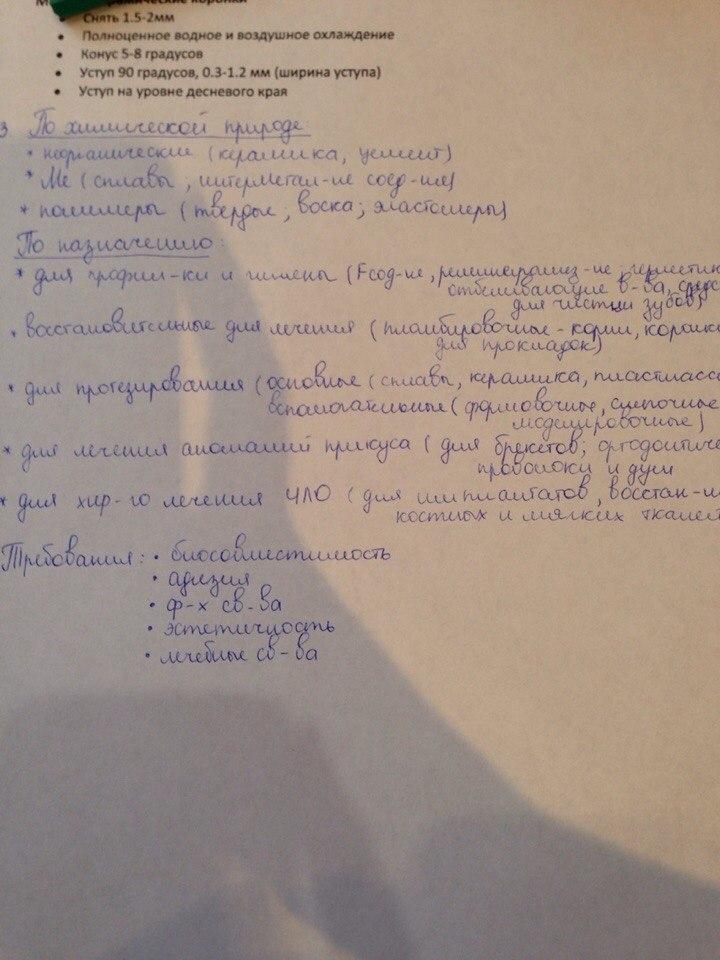 коронки
Снять 1.5-2мм
Полноценное водное и воздушное охлаждение
Конус 5-8 градусов
Уступ 90 градусов, 0.3-1.2 мм (ширина уступа)
Уступ на уровне десневого края
3 По химической природе:
* неорганические (керамика, цемент)
* Ме (сплавы; интерметал-ие соед-ия)
* полимеры (твердые; воска; эластомеры)
По назначению:
* для профил-ки и гигиены (F сод-ие,
отбеливающие в-ва,
для чистки зубов)
* восстановительные для лечения (пломбировочные - корни,
для прокладок)
* для протезирования (основные (сплавы, керамика, пластмасс
вспомогательные (формовочные,
моделировочные)
* для лечения аномалий прикуса (для брекетов;
проволоки и дуги
* для хир-го лечения ЧЛО (для имплантатов, восстан-
костных и мягких тканей
Требования: • биосовместимость
• адгезия
• ф-х св-ва
• эстетичность
• лечебные св-ва